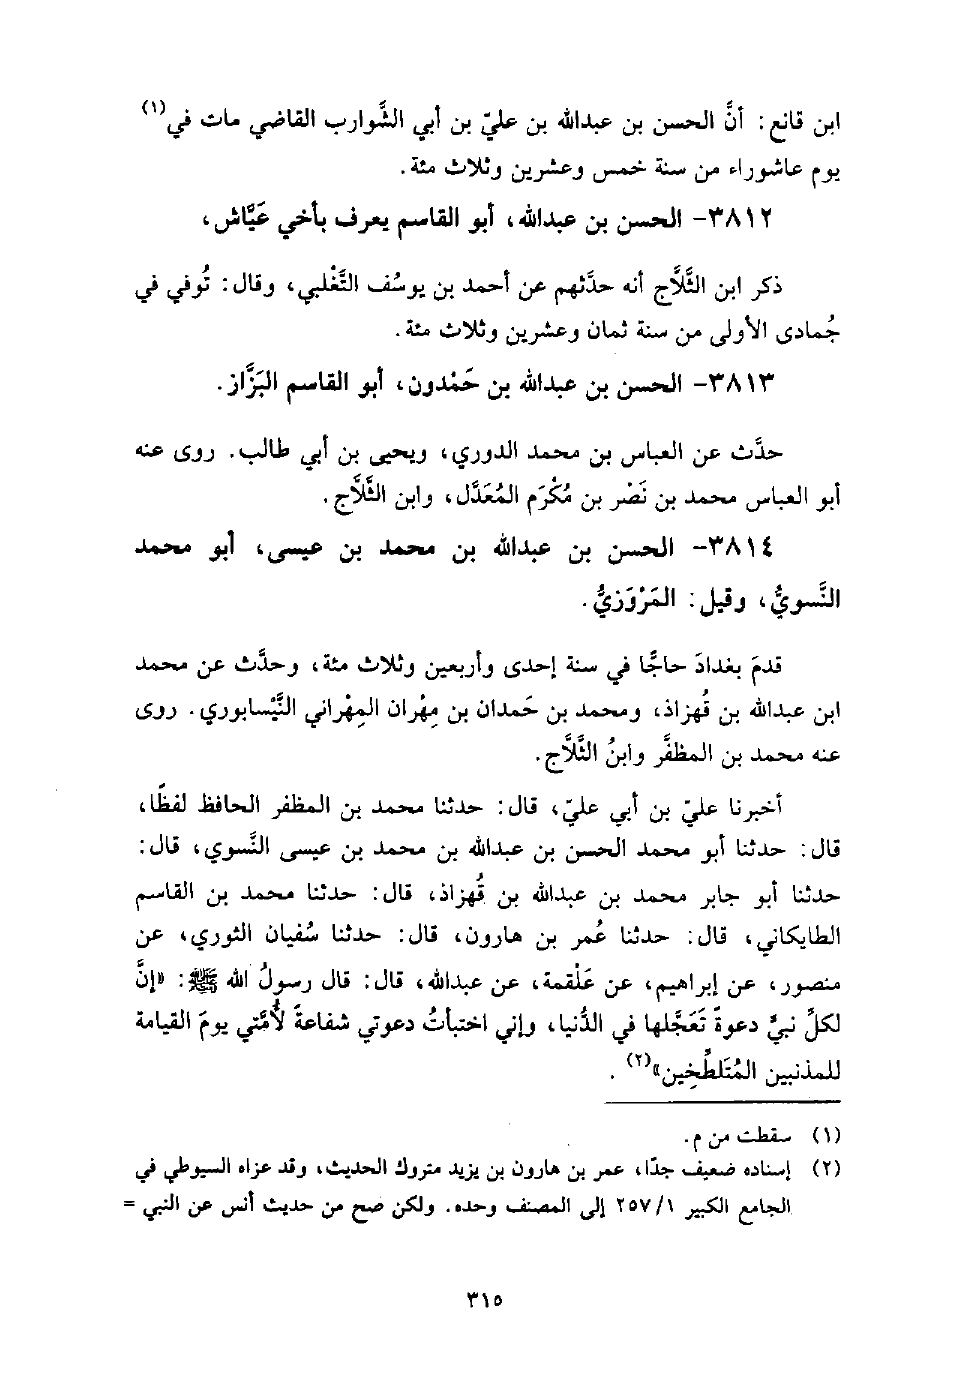 ابن قانع: أنَّ الحسن بن عبدالله بن عليّ بن أبي الشَّوارب القاضي مات في(١)
يوم عاشوراء من سنة خمس وعشرين وثلاث مئة.
٣٨١٢- الحسن بن عبدالله، أبو القاسم يعرف بأخي عَيَّاش،
ذكر ابن الثَّلَّاج أنه حدَّثهم عن أحمد بن يوسُف التَّغْلبي، وقال: تُوفي في
جُمادى الأولى من سنة ثمان وعشرين وثلاث مئة.
٣٨١٣- الحسن بن عبدالله بن حَمْدون، أبو القاسم البَزَّاز.
حدَّث عن العباس بن محمد الدوري، ويحيى بن أبي طالب. روى عنه
أبو العباس محمد بن نَصْر بن مُكْرَم المُعَدَّل، وابن الثَّلَّاج.
٣٨١٤- الحسن بن عبدالله بن محمد بن عيسى، أبو محمد
النَّسويُّ، وقيل: المَرْوَزيُّ.
قدمَ بغدادَ حاجًّا في سنة إحدى وأربعين وثلاث مئة، وحدَّث عن محمد
ابن عبدالله بن قُهزاذ، ومحمد بن حَمدان بن مِهْران المِهْراني النَّيْسابوري. روى
عنه محمد بن المظفَّر وابنُ الثَّلَّاج.
أخبرنا عليّ بن أبي عليّ، قال: حدثنا محمد بن المظفر الحافظ لفظًا،
قال: حدثنا أبو محمد الحسن بن عبدالله بن محمد بن عيسى النَّسوي، قال:
حدثنا أبو جابر محمد بن عبدالله بن قُهزاذ، قال: حدثنا محمد بن القاسم
الطايكاني، قال: حدثنا عُمر بن هارون، قال: حدثنا سُفيان الثوري، عن
منصور، عن إبراهيم، عن عَلْقمة، عن عبدالله، قال: قال رسولُ الله ﷺ: «إنَّ
لكلِّ نبيٍّ دعوةً تَعَجَّلها في الدُّنيا، وإني اختبأتُ دعوتي شفاعةً لأُمَّتي يومَ القيامة
للمذنبين المُتَلطِّخين»(٢).
(١) سقطت من م.
(٢) إسناده ضعيف جدًا، عمر بن هارون بن يزيد متروك الحديث، وقد عزاه السيوطي في
الجامع الكبير ٢٥٧/١ إلى المصنف وحده. ولكن صح من حديث أنس عن النبي =
٣١٥